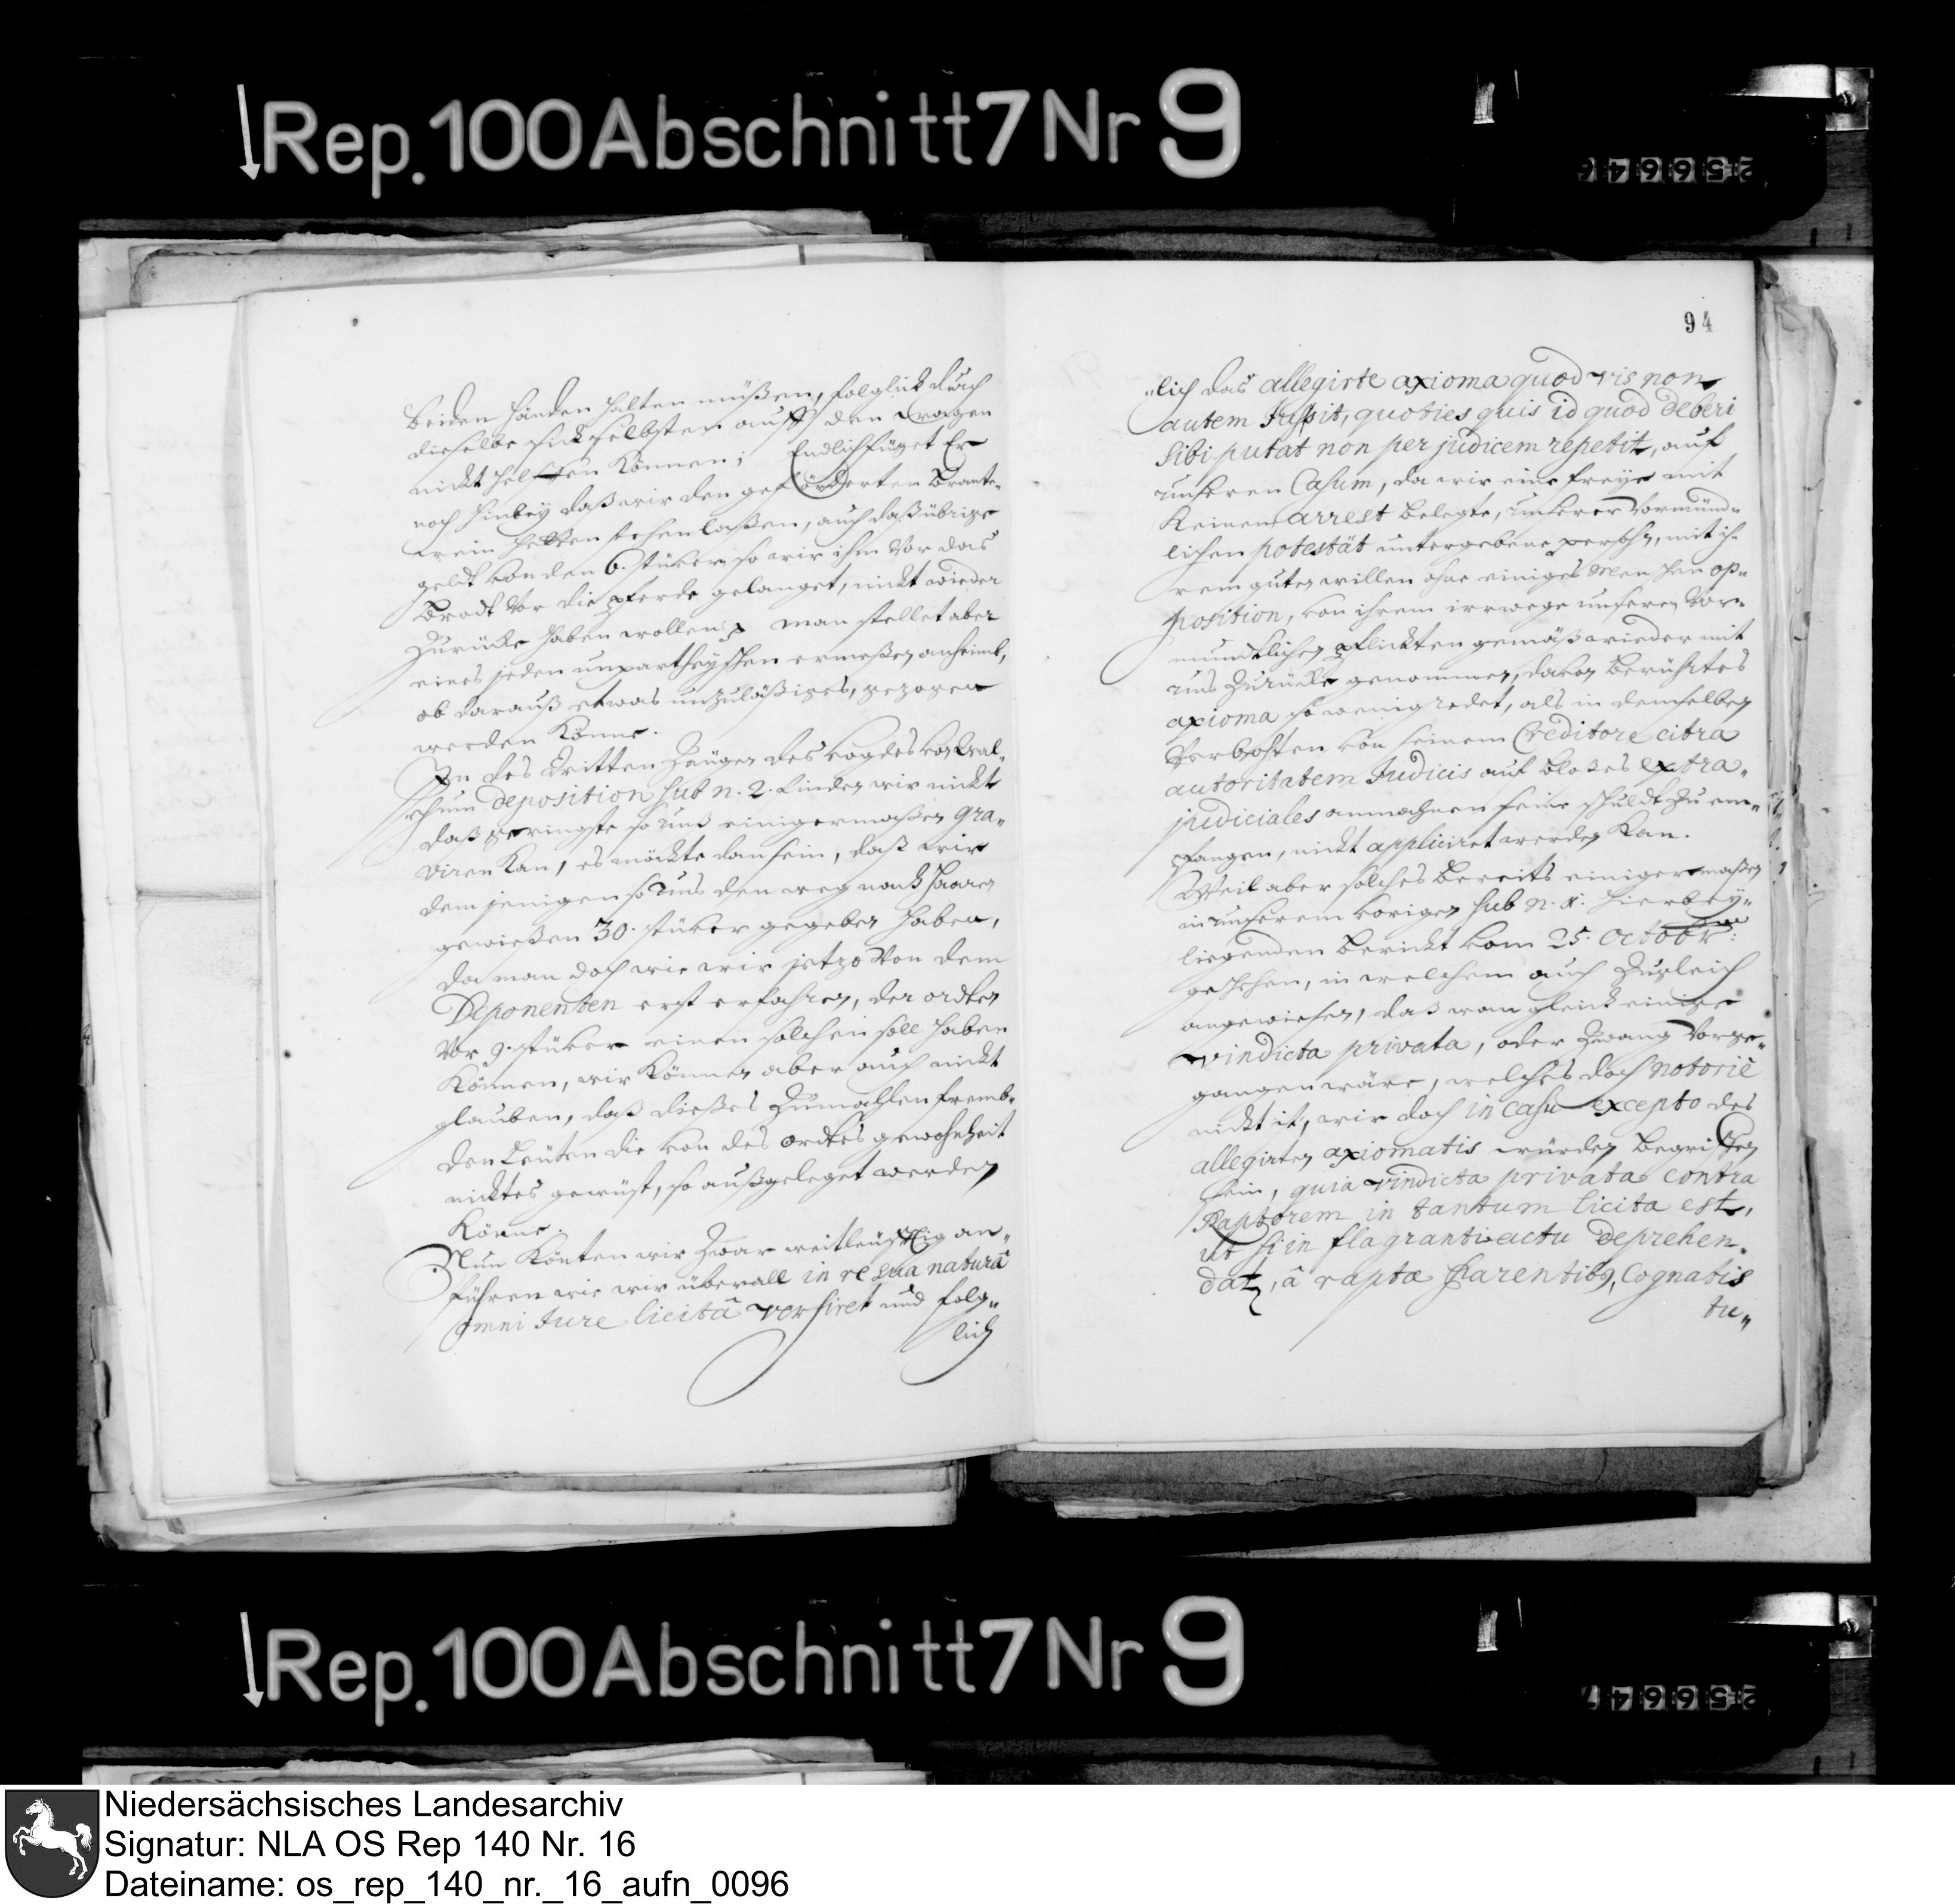 Rep. 100 Abschnitt 7 Nr 9
94
beiden händen halten müßen, folglich durch
dieselbe sich selbsten auff den wagen
nicht helffen können; Endlich füget Er
noch hinbey daß wir den geförderten Brante-
wein hetten stehen laßen, auch daß übrige
geldt von den 6. stüber so wir ihm vor das
Brodt vor die pferde gelanget, nicht wieder
zurücke haben wollen; man stellet aber
eines jeden unpartheyschen ermeßen anheimb,
ob darauß etwas unzuläßiges, gezogen
werden könne.
In des dritten Zeugen des vogdes von
deposition sub n. 2. finden wir nicht
daß geringste so unß einigermaßen gra-
viren kan, es möchte dan sein, daß wir
dem jenigen so uns den weg nach Haaren
gewießen 30. stüber gegeben haben,
da man doch wie wir jetzo von dem
Deponenten erst erfahren, der ordten
vor 9. stüber einen solchen soll haben
können, wir können aber auch nicht
glauben, daß dießes zumahlen fremb-
den Leuten die von des ordtes gewohnheit
nichtes gewust, so außgeleget werden
könne.
Nun könten wir zwar weitleufftig an-
führen wie wir überall in re sua naturâ
omni Jure licitâ versiret und folg-
lich
lich das allegirte axioma quod vis non
autem Jus sit, quoties quis id quod deberi
sibi putat non per judicem repetit, auf
unseren Casum, da wir eine freye mit
keinem arrest belegte, unserer vormünd-
lichen potestät untergebene persohn, mit ih-
rem guten willen ohne einiges menschen op-
position, von ihrem irrwege unseren vor-
mundtlichen pflichten gemäß wieder mit
uns zurücke genommen, davon berührtes
axioma so wenig redet, als in demselben
von seinem Creditore citra
autoritatem Judicis auf bloßes extra-
judiciales anmahnen seine schuldt zu em-
pfangen, nicht appliciret werden kan.
Weil aber solches bereits einigermaßen
in unserem vorigen sub n. X. hierbey-
liegenden bericht vom 25. Octobr:
geschehen, in welchem auch zugleich
angewiesen, daß wan gleich einige
vindicta privata, oder zwang vorge-
gangen wäre, welches doch notoriè
nicht ist, wir doch in casu excepto des
allegirten axiomatis würden begriffen
sein, quia vindicta privata contra
Raptorem in tantum licita est,
ut si in flagranti actu deprehen-
datz, â raptæ Parentib9, Cognatis
tu-
Rep. 100 Abschnitt 7 Nr 9
Niedersächsisches Landesarchiv
Signatur: NLA OS Rep 140 Nr. 16
Dateiname: os_rep_140_nr._16_aufn_0096